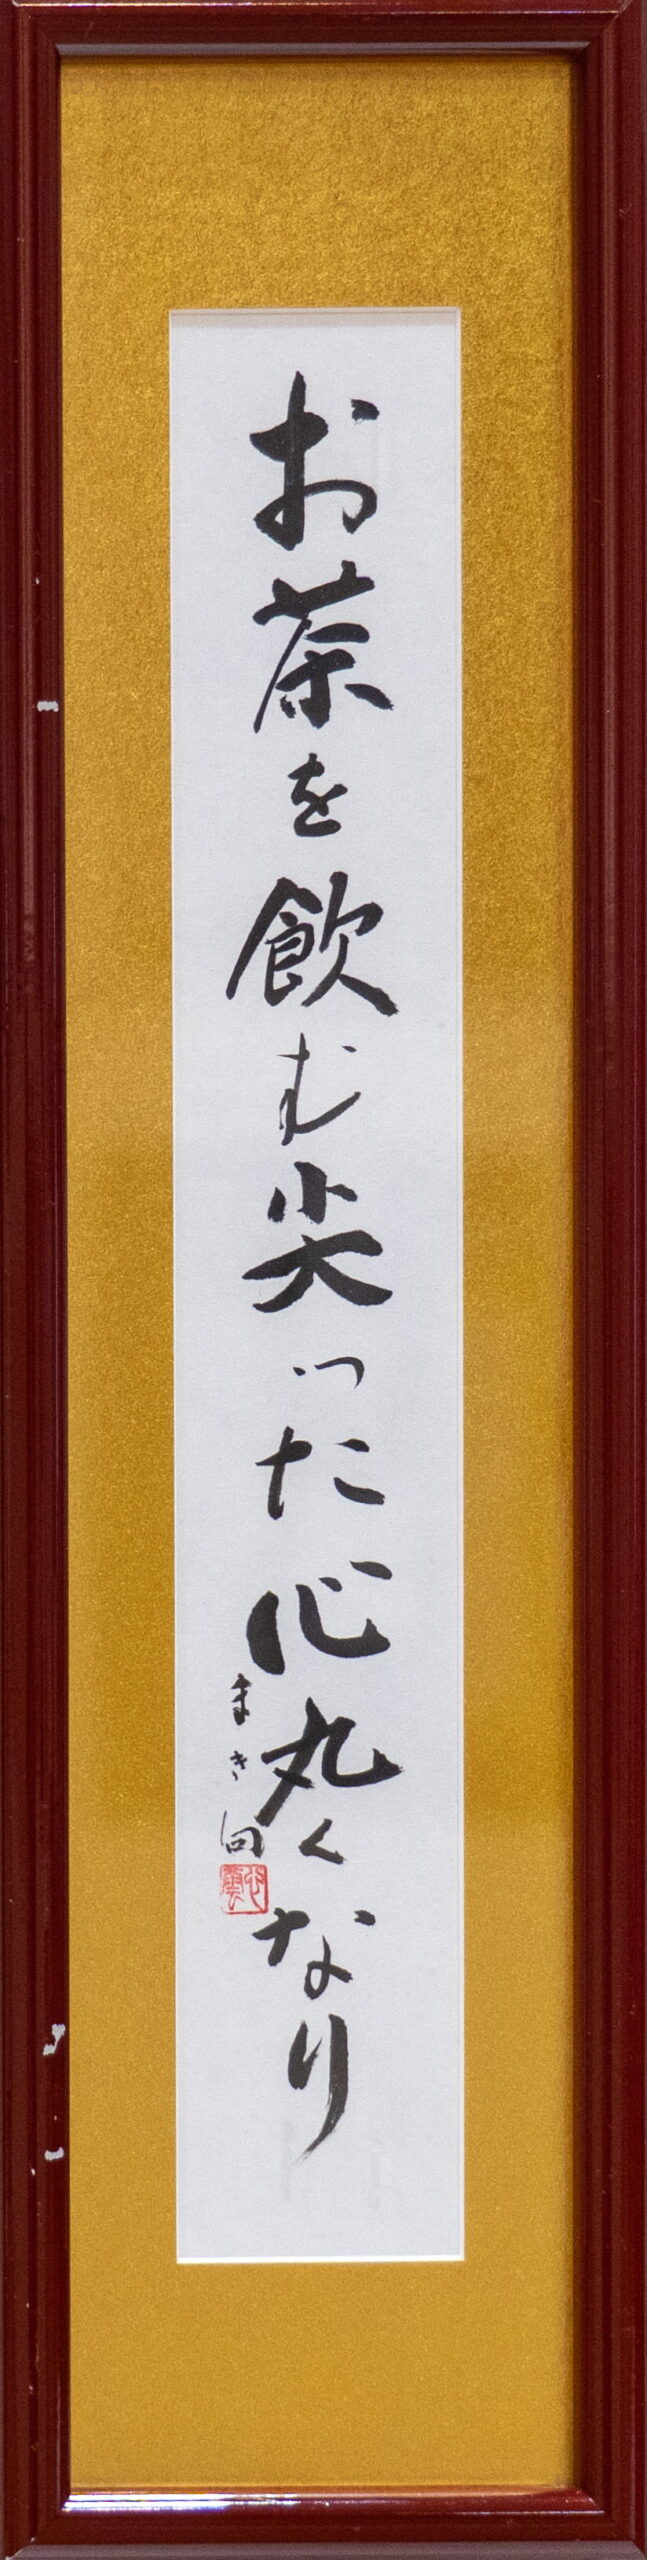 お茶を飲む尖った心丸くなり
まき